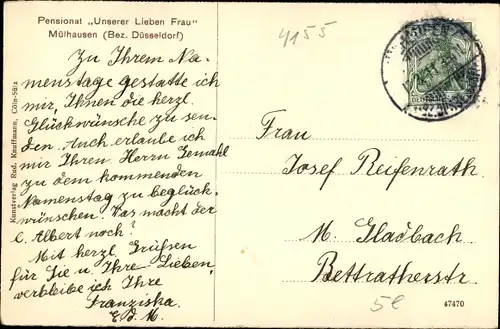 Pensionat „Unserer Lieben Frau"
Mülhausen (Bez. Düsseldorf)
4155
Zu Ihrem Na-
menstage gestatte ich
mir, Ihnen die herzl.
Glückwünsche zu sen-
den. Auch erlaube ich
mir Ihren Herrn Gemahl
zu dem kommenden
Namenstag zu beglück-
wünschen. Was macht der
l. Albert noch?
Mit herzl. Grüßen
für Sie u. Ihre Lieben,
verbleibe ich Ihre
Franziska.
E. d. M.
Kunstverlag Rud. Kauffmann, Cöln-Sülz
Frau
Josef Reifenrath
M. Gladbach
Bettratherstr
5e
47470